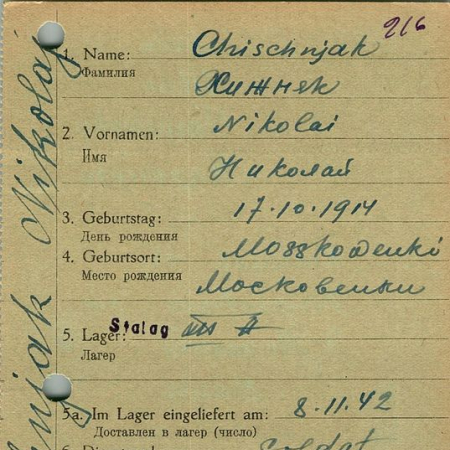 216
1. Name: Chischnjak
Фамилия Хижняк
2. Vornamen: Nikolai
Имя Николай
3. Geburtstag: 17.10.1914
День рождения
4. Geburtsort: Mosskowenki
Место рождения Московеньки
5. Lager: Stalag III A
Лагер
5a. Im Lager eingeliefert am: 8.11.42
Доставлен в лагер (число)
Soldat
njak Nikolaj